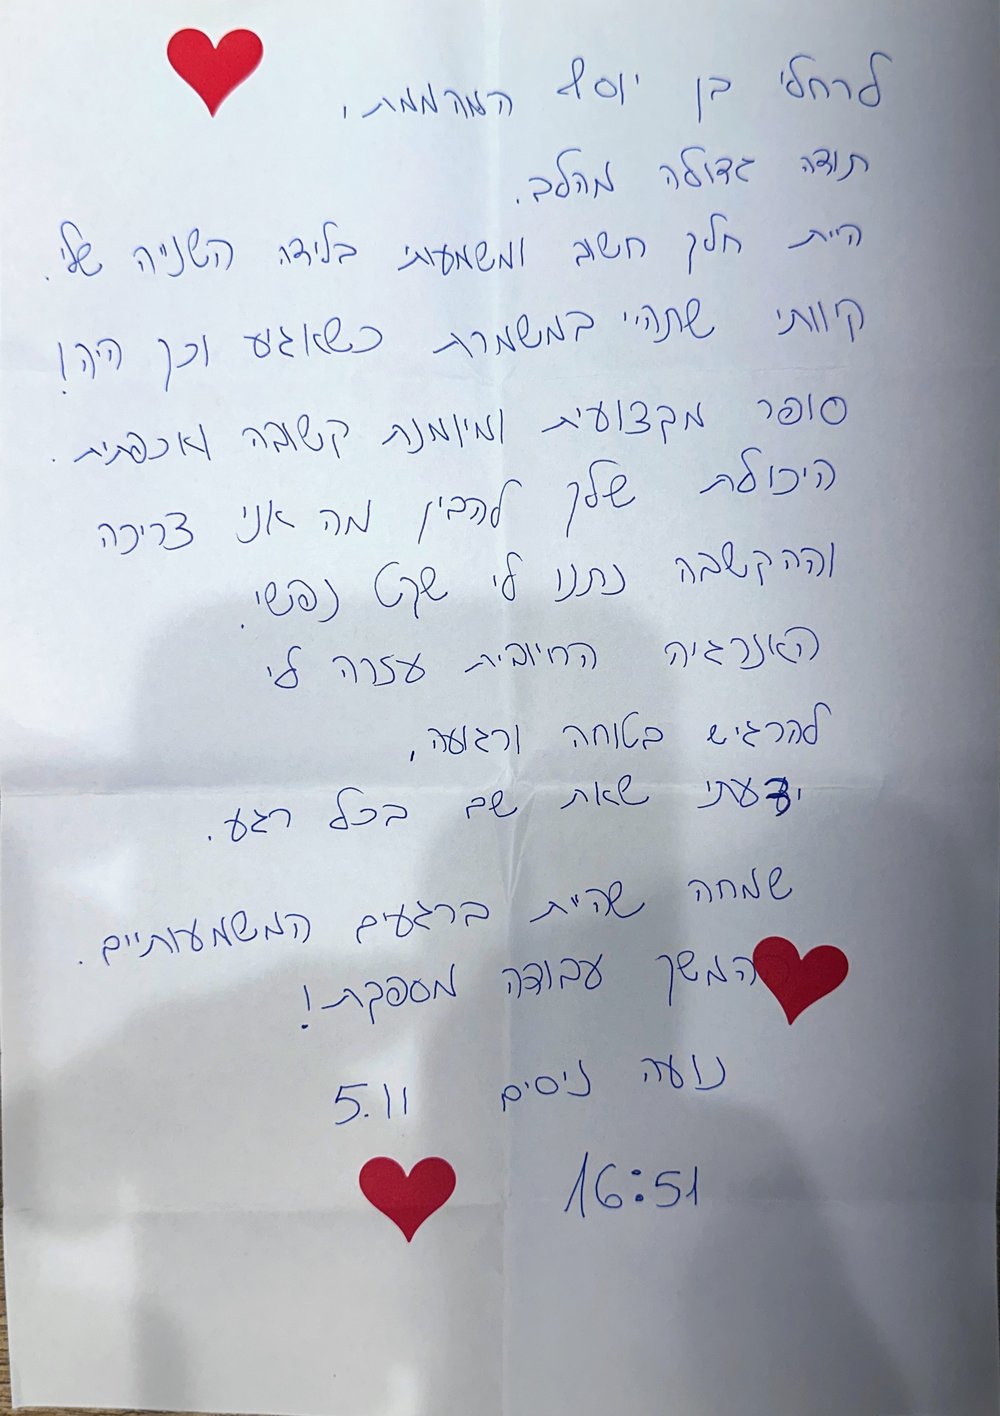 לרחלי בן יוסף המהממת,
תודה גדולה מהלב.
היית חלק חשוב ומשמעותי בלידה השנייה שלי.
קיוותי שתהיי במשמרת כשאגע וכך היה!
סופר מקצועית ומיומנת קשובה ואכפתית.
היכולת שלך להבין מה אני צריכה
וההקשבה נתנו לי שקט נפשי.
האנרגיה החיובית עזרה לי
להרגיש בטוחה ורגועה,
ידעתי שאת שם בכל רגע.
שמחה שהיית ברגעים המשמעותיים.
המשך עבודה מספקת!
נועה ניסים 5.11
16:51